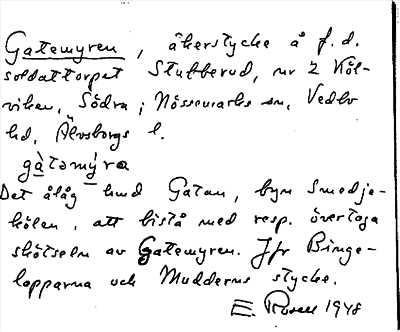 Gatemyren, åkerstycke å f. d.
soldattorpet Stubberud, nr 2 Köl-
viken, Södra; Nössemarks sn, Vedbo
hd, Älvsborgs l.
gàtəmýra
Det ålåg hmd Gatan, byn Smedje-
kölen, att bistå med resp. övertaga
skötseln av Gatemyren. Jfr Binge-
lopparna och Mudderns stycke.
E. Rosell 1948